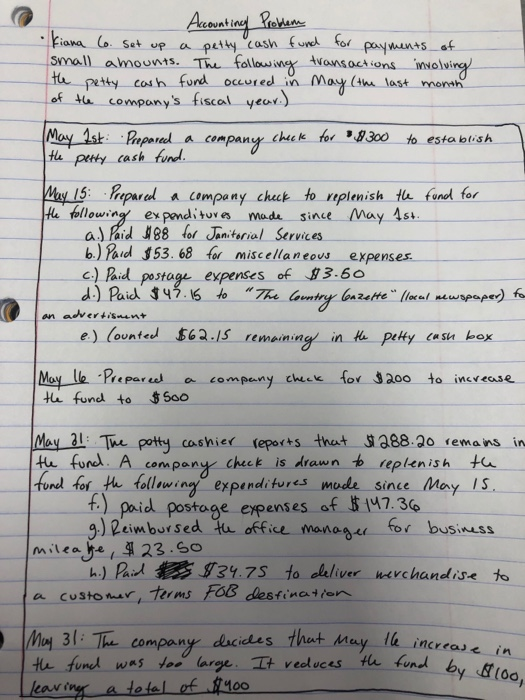 Accounting Problem
• Kiana Co. set up a petty cash fund for payments of
small amounts. The following transactions involving
the petty cash fund occured in May (the last month
of the company's fiscal year.)
May 1st: Prepared a company check for $300 to establish
the petty cash fund.
May 15: Prepared a company check to replenish the fund for
the following expenditures made since May 1st.
a.) Paid $88 for Janitorial Services
b.) Paid $53.68 for miscellaneous expenses.
c.) Paid postage expenses of $3.60
d.) Paid $47.15 to "The Country Gazette" (local newspaper) fo
an advertisment
e.) Counted $62.15 remaining in the petty cash box
May 16 - Prepared a company check for $200 to increase
the fund to $500
May 31: The potty cashier reports that $288.20 remains in
the fund. A company check is drawn to replenish the
fund for the following expenditures made since May 15.
f.) paid postage expenses of $147.36
g.) Reimbursed the office manager for business
mileage, $23.50
h.) Paid $34.75 to deliver merchandise to
a customer, terms FOB destination
May 31: The company decides that May 16 increase in
the fund was too large. It reduces the fund by $100,
leaving a total of $400